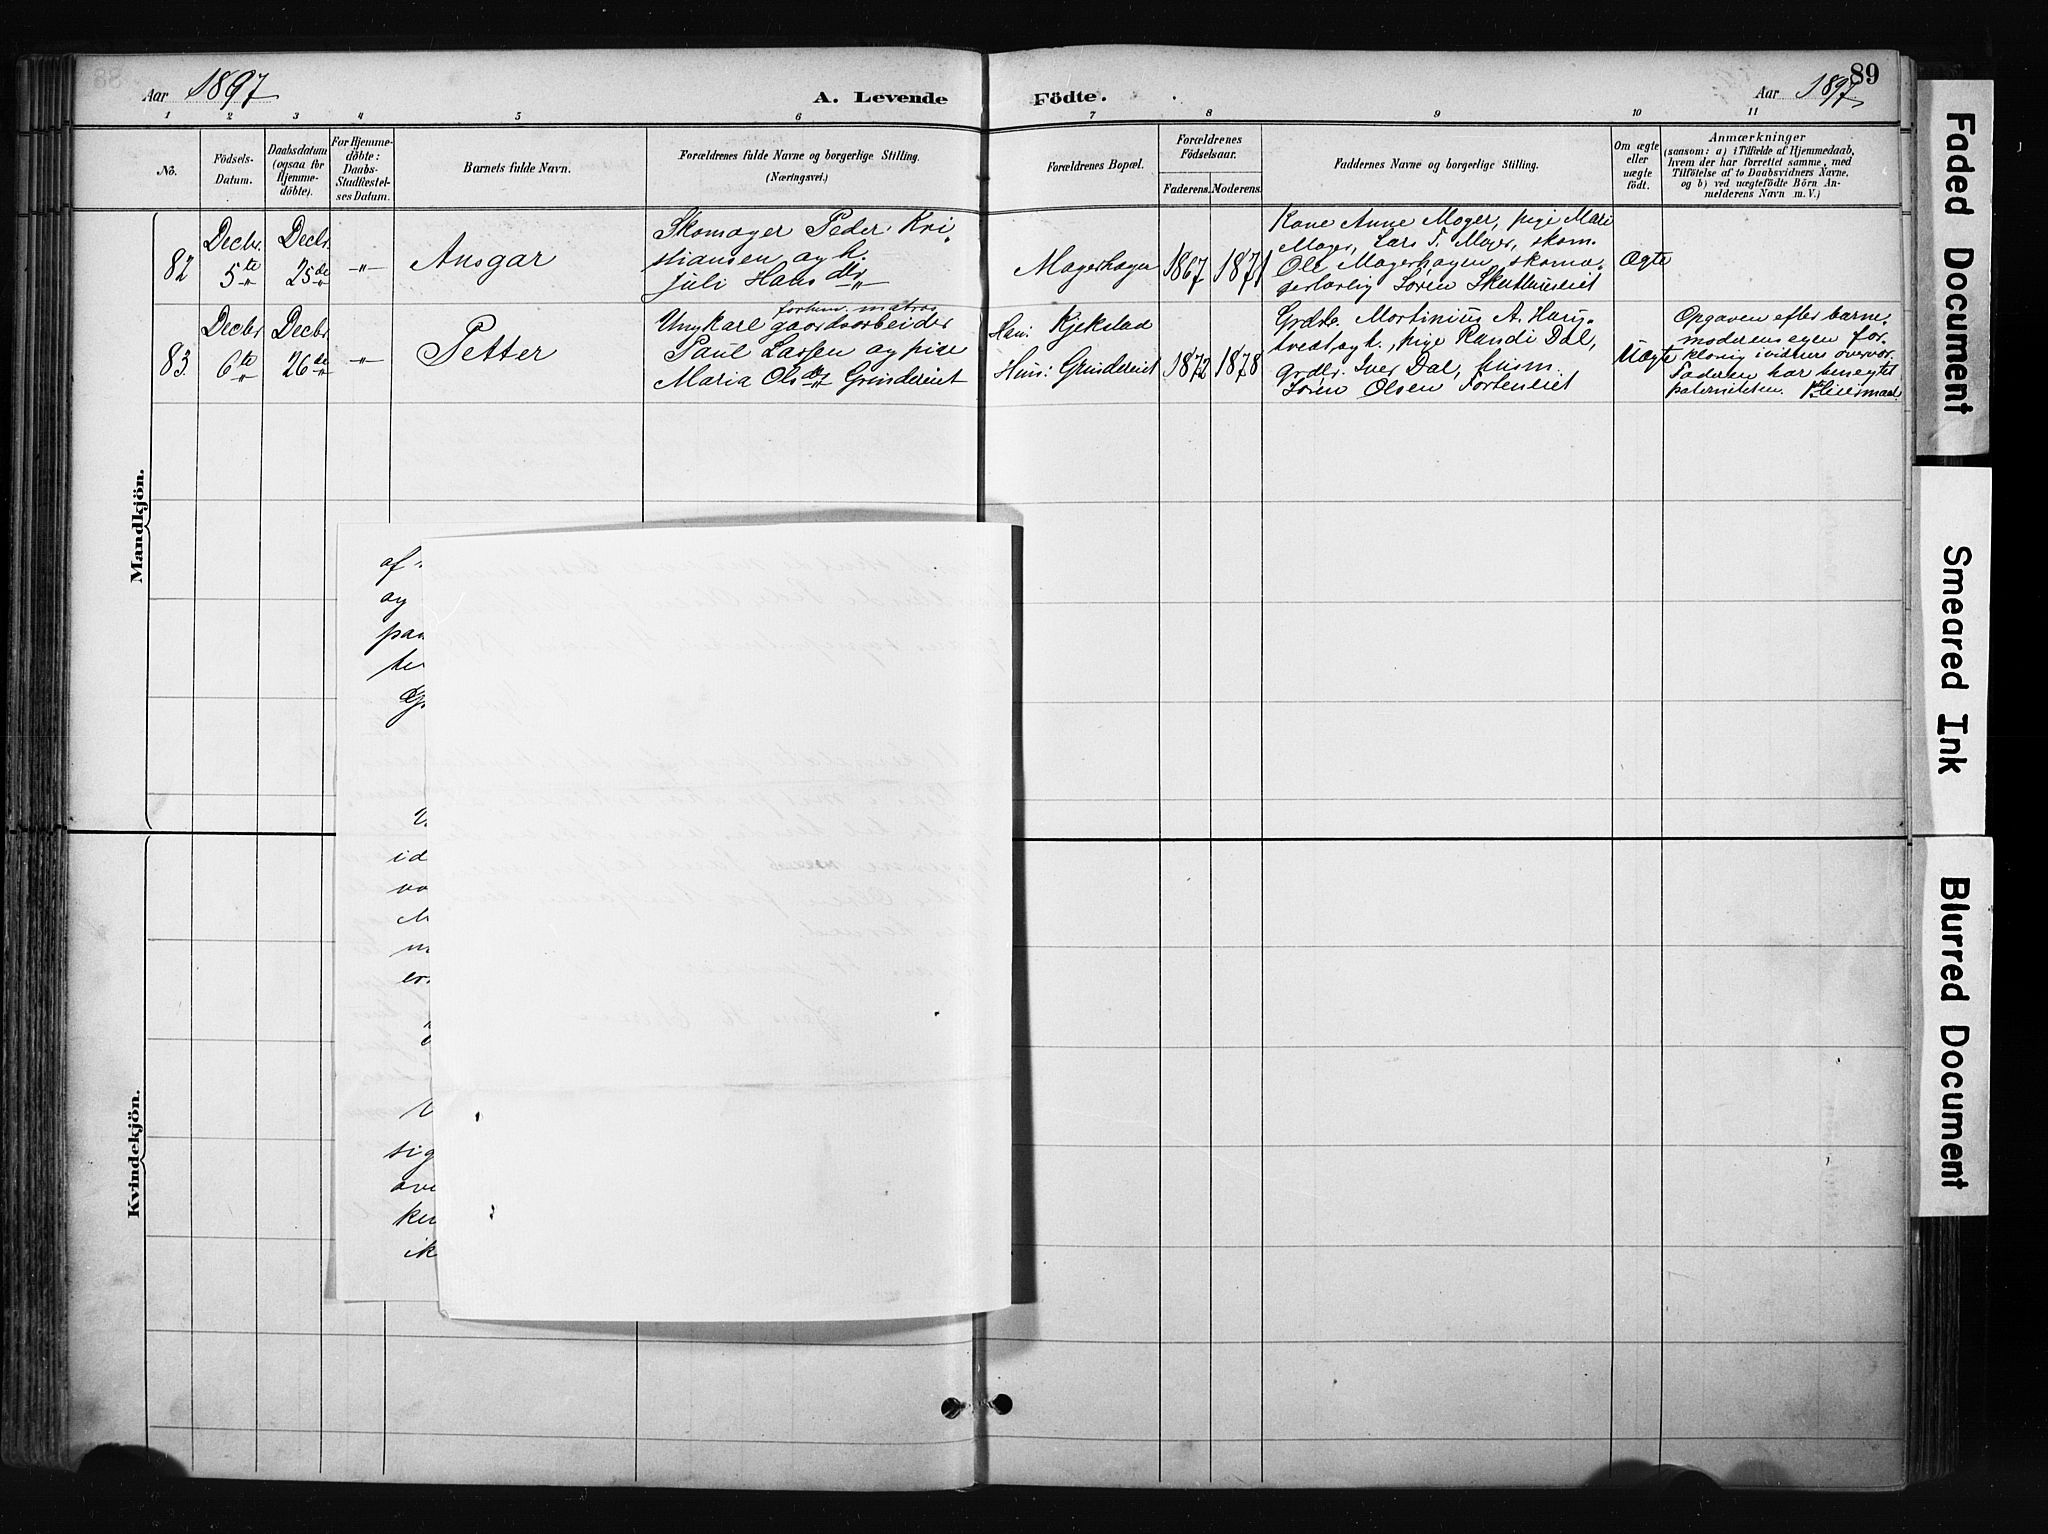 89
Aar 1897
A. Levende
Födte.
Aar 1897
1 2 3 4 5 6 7 8 9 10 11
No.
Födsels-
Datum.
Daabsdatum
(ogsaa for
Hjemme-
döbte).
For Hjemme-
döbte:
Daabs-
Stadfæstel-
ses Datum.
Barnets fulde Navn.
Forældrenes fulde Navne og borgerlige Stilling.
(Næringsvei.)
Forældrenes Bopæl.
Forældrenes
Födselsaar.
Faderens. Moderens.
Faddernes Navne og borgerlige Stilling.
Om ægte
eller
uægte
født.
Anmærkninger
(saasom: a) i Tilfælde af Hjemmedaab,
hvem der har forrettet samme, med
Tilföielse af to Daabsvidners Navne,
og b) ved uægtefödte Börn An-
melderens Navn m.V.)
Mandkjön.
82
Decbr.
5te
Decbr.
25de
-"-
Ansgar
Skomager Peder Kri-
stiansen og h.
Juli Hansdtr
Magerhagen
1867
1871
Kone Anne Moger, pige Mari
Moger, Lars T. Moger, skom.
Ole Magerhagen, skoma-
gerlærling Søren
Ægte
83.
Decbr
6te
Decbr
26de
-"-
Petter
forhen. matros
Ungkarl gaardsarbeider
Paul Larsen og pige
Maria Olsdtr Grindereiet
Han: Kjekstad
Hun: Grindereiet
1872
1878
Grdbr. Martinius A. Haug-
tvedt, og h., pige Randi Dal,
grdbr. Iver Dal, husm.
Søren Olsen Forteneiet
Uægte
Opgaven efter barne-
moderens egen for-
klaring i vidners overvær.
Faderen har benegtet
paterniteten. 1ste Leiermaal.
af
og
paa
te
id
sig
ove
ik
Kvindekjön.
Faded Document
Smeared Ink
Blurred Document